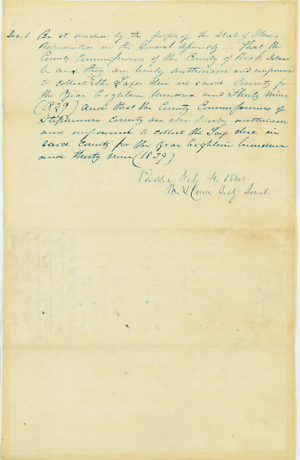 Sec. 1 Be it enacted by the people of the State of Illinois
Represented in the General Assembly. That the
County Commissioners of the County of Rock Island
be and they are hereby authorized and empowered
to collect the Taxes due in said County for
the Year Eighteen hundred and Thirty Nine
(1839) and that the County Commissioners of
Stephenson County are also hereby authorized
and empowered to collect the Tax due in
said County for the Year Eighteen hundred
and thirty Nine (1839)
Feby 4 184